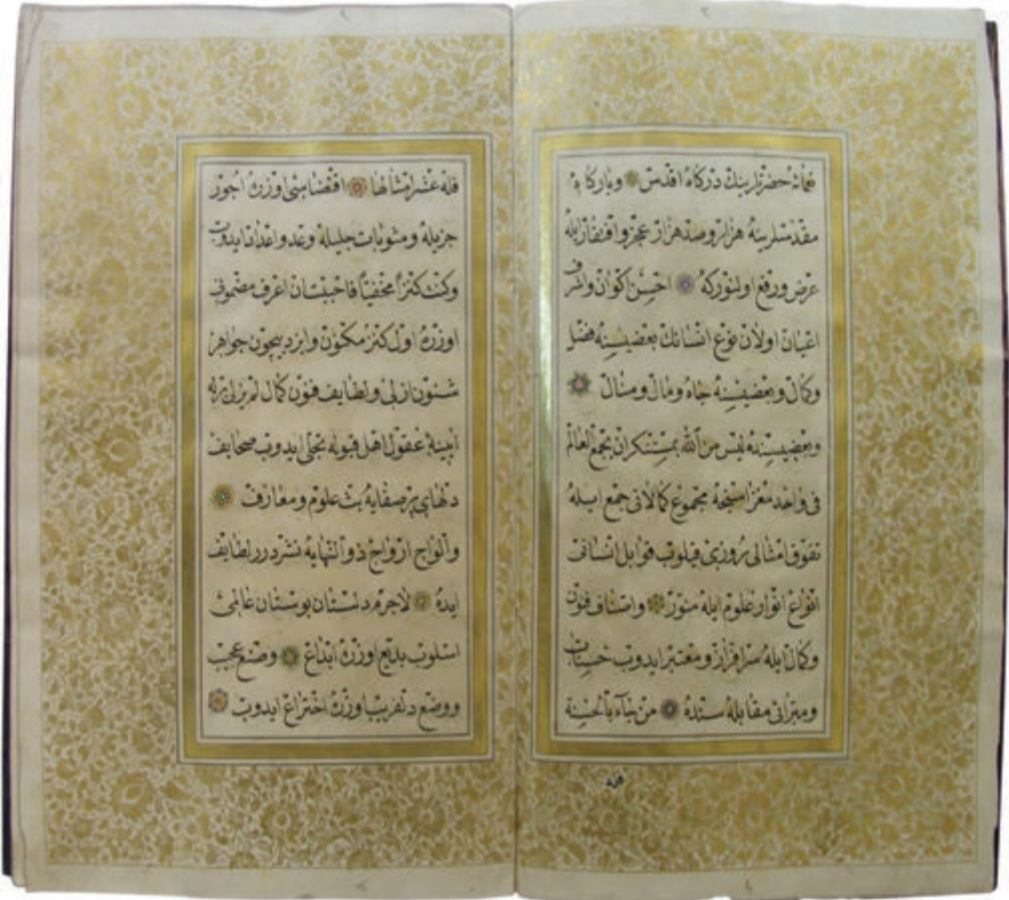 حضرتلرينك دركاه اقدس وباركاه
مقدسلرينه هزار وصد هزار عجز وافتقار ايله
عرض ورفع اولنوركه احسن اكوان واشرف
اعيان اولان نوع انسانك بعضيسنه فضل
وكمال وبعضيسنه جاه ومال ومنال
وبعضيسنده ليس من الله بمستنكر ان يجمع العالم
فى واحد مجموع كمالاتى جمع ايله
تفوق امثالى روزى قيلوب قوابل انسانى
انواع انوار علوم ايله منور واصناف فنون
وكمال ايله سرافراز ومعتبر ايدوب حسنات
ومبراتى مقابله سنده من جاء بالحسنة
فله
فله عشر امثالها اقتضاسى اوزره اجور
جزيله ومثوبات جليله وعد واعداد ايدوب
وكنت كنزا مخفيا فاحببت ان اعرف مضمونى
اوزره اول كنز مكنون وايزد بيچون جواهر
شئون ازلى ولطايف فنون كمال لم يزلى
آيينه عقول اهل قبوله تجلى ايدوب صحايف
دلهاى پر صفايه بث علوم ومعارف
والواح ارواح ذو النهايه نشر درر لطايف
ايده لاجرم دلستان بوستان عالمى
اسلوب بديع اوزره ابداع وصنع عجيب
ووضع دلفريب اوزره اختراع ايدوب